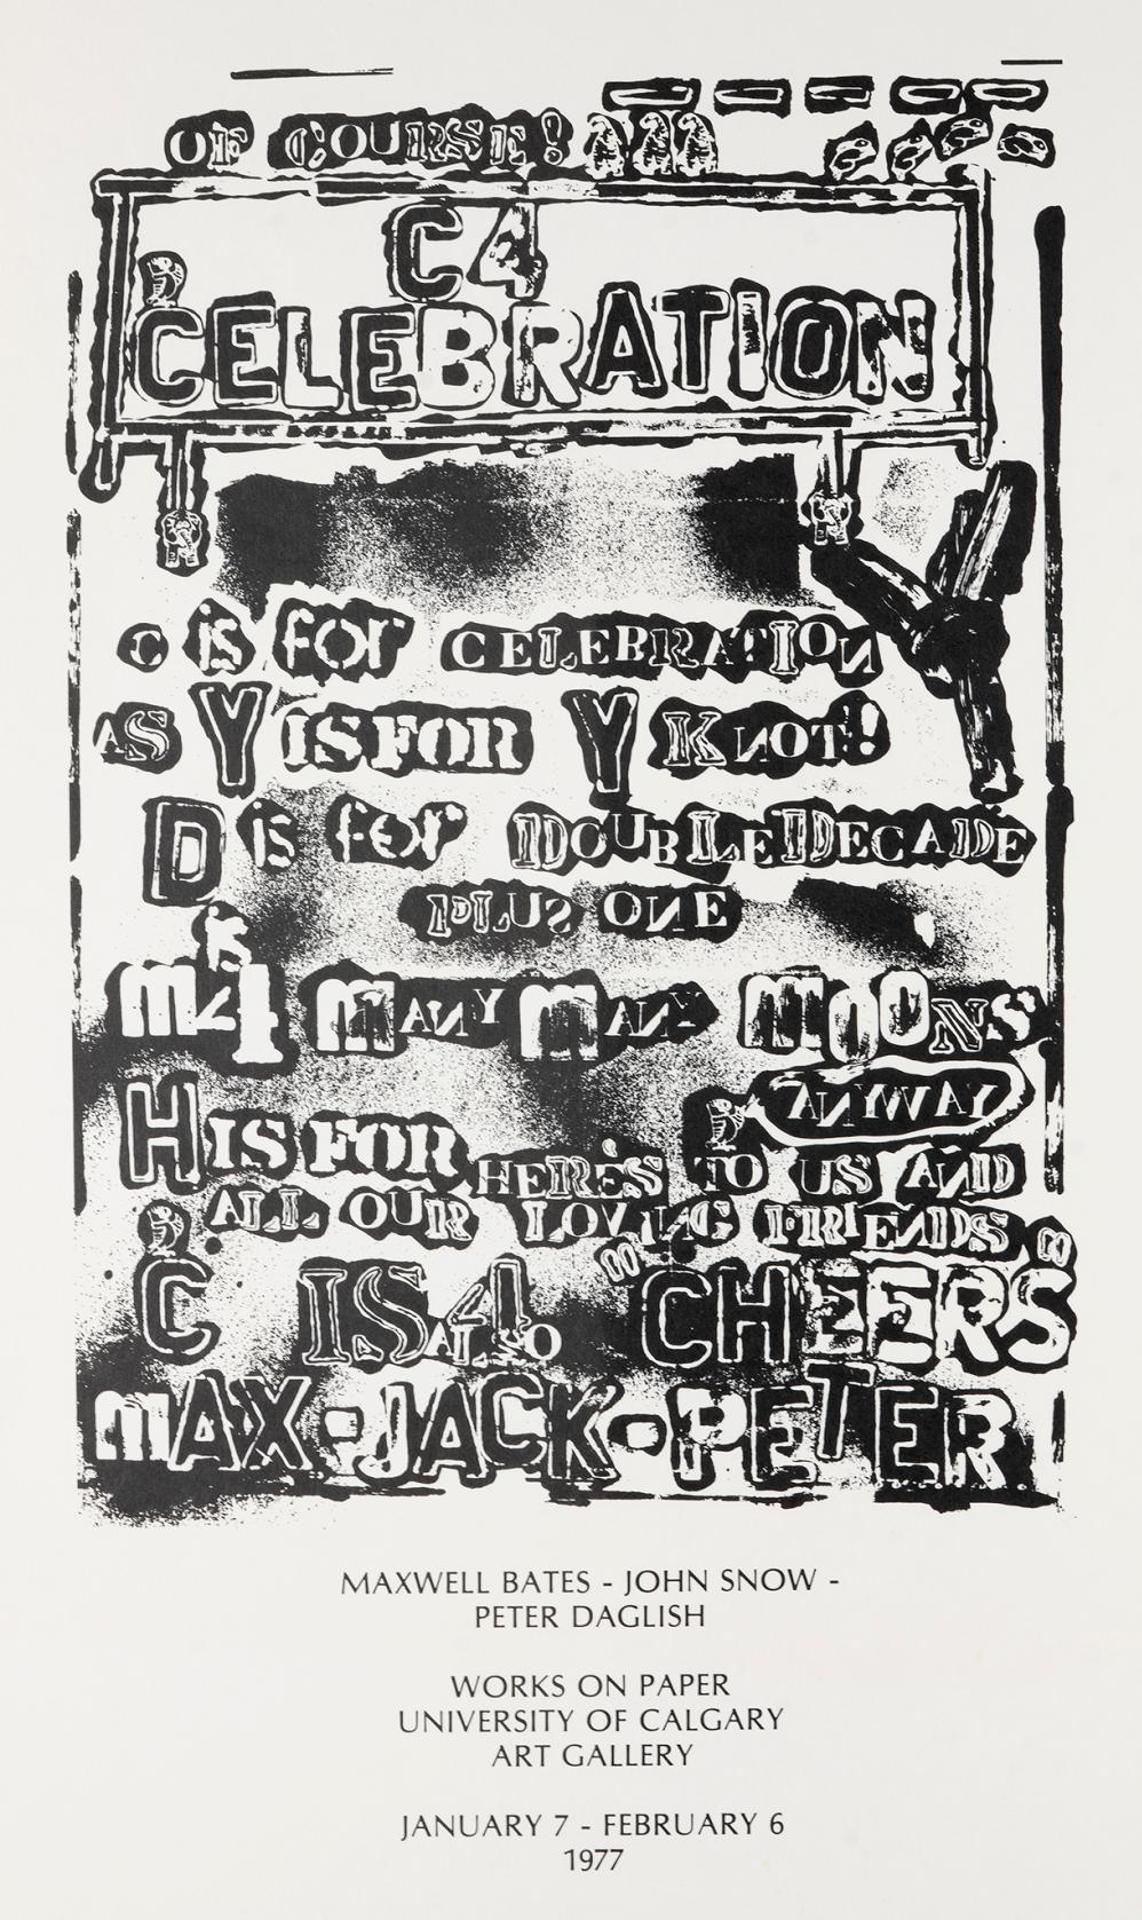 OF COURSE!
C4
CELEBRATION
C is for CELEBRATION
AS Y IS FOR Y KNOT!
D is for DOUBLE DECADE
PLUS ONE
M is 4 MANY MANY MOONS
ANYWAY
H IS FOR HERE'S TO US AND
ALL OUR LOVING FRIENDS
C IS ALSO 4 "CHEERS"
MAX-JACK-PETER
MAXWELL BATES - JOHN SNOW -
PETER DAGLISH
WORKS ON PAPER
UNIVERSITY OF CALGARY
ART GALLERY
JANUARY 7 - FEBRUARY 6
1977